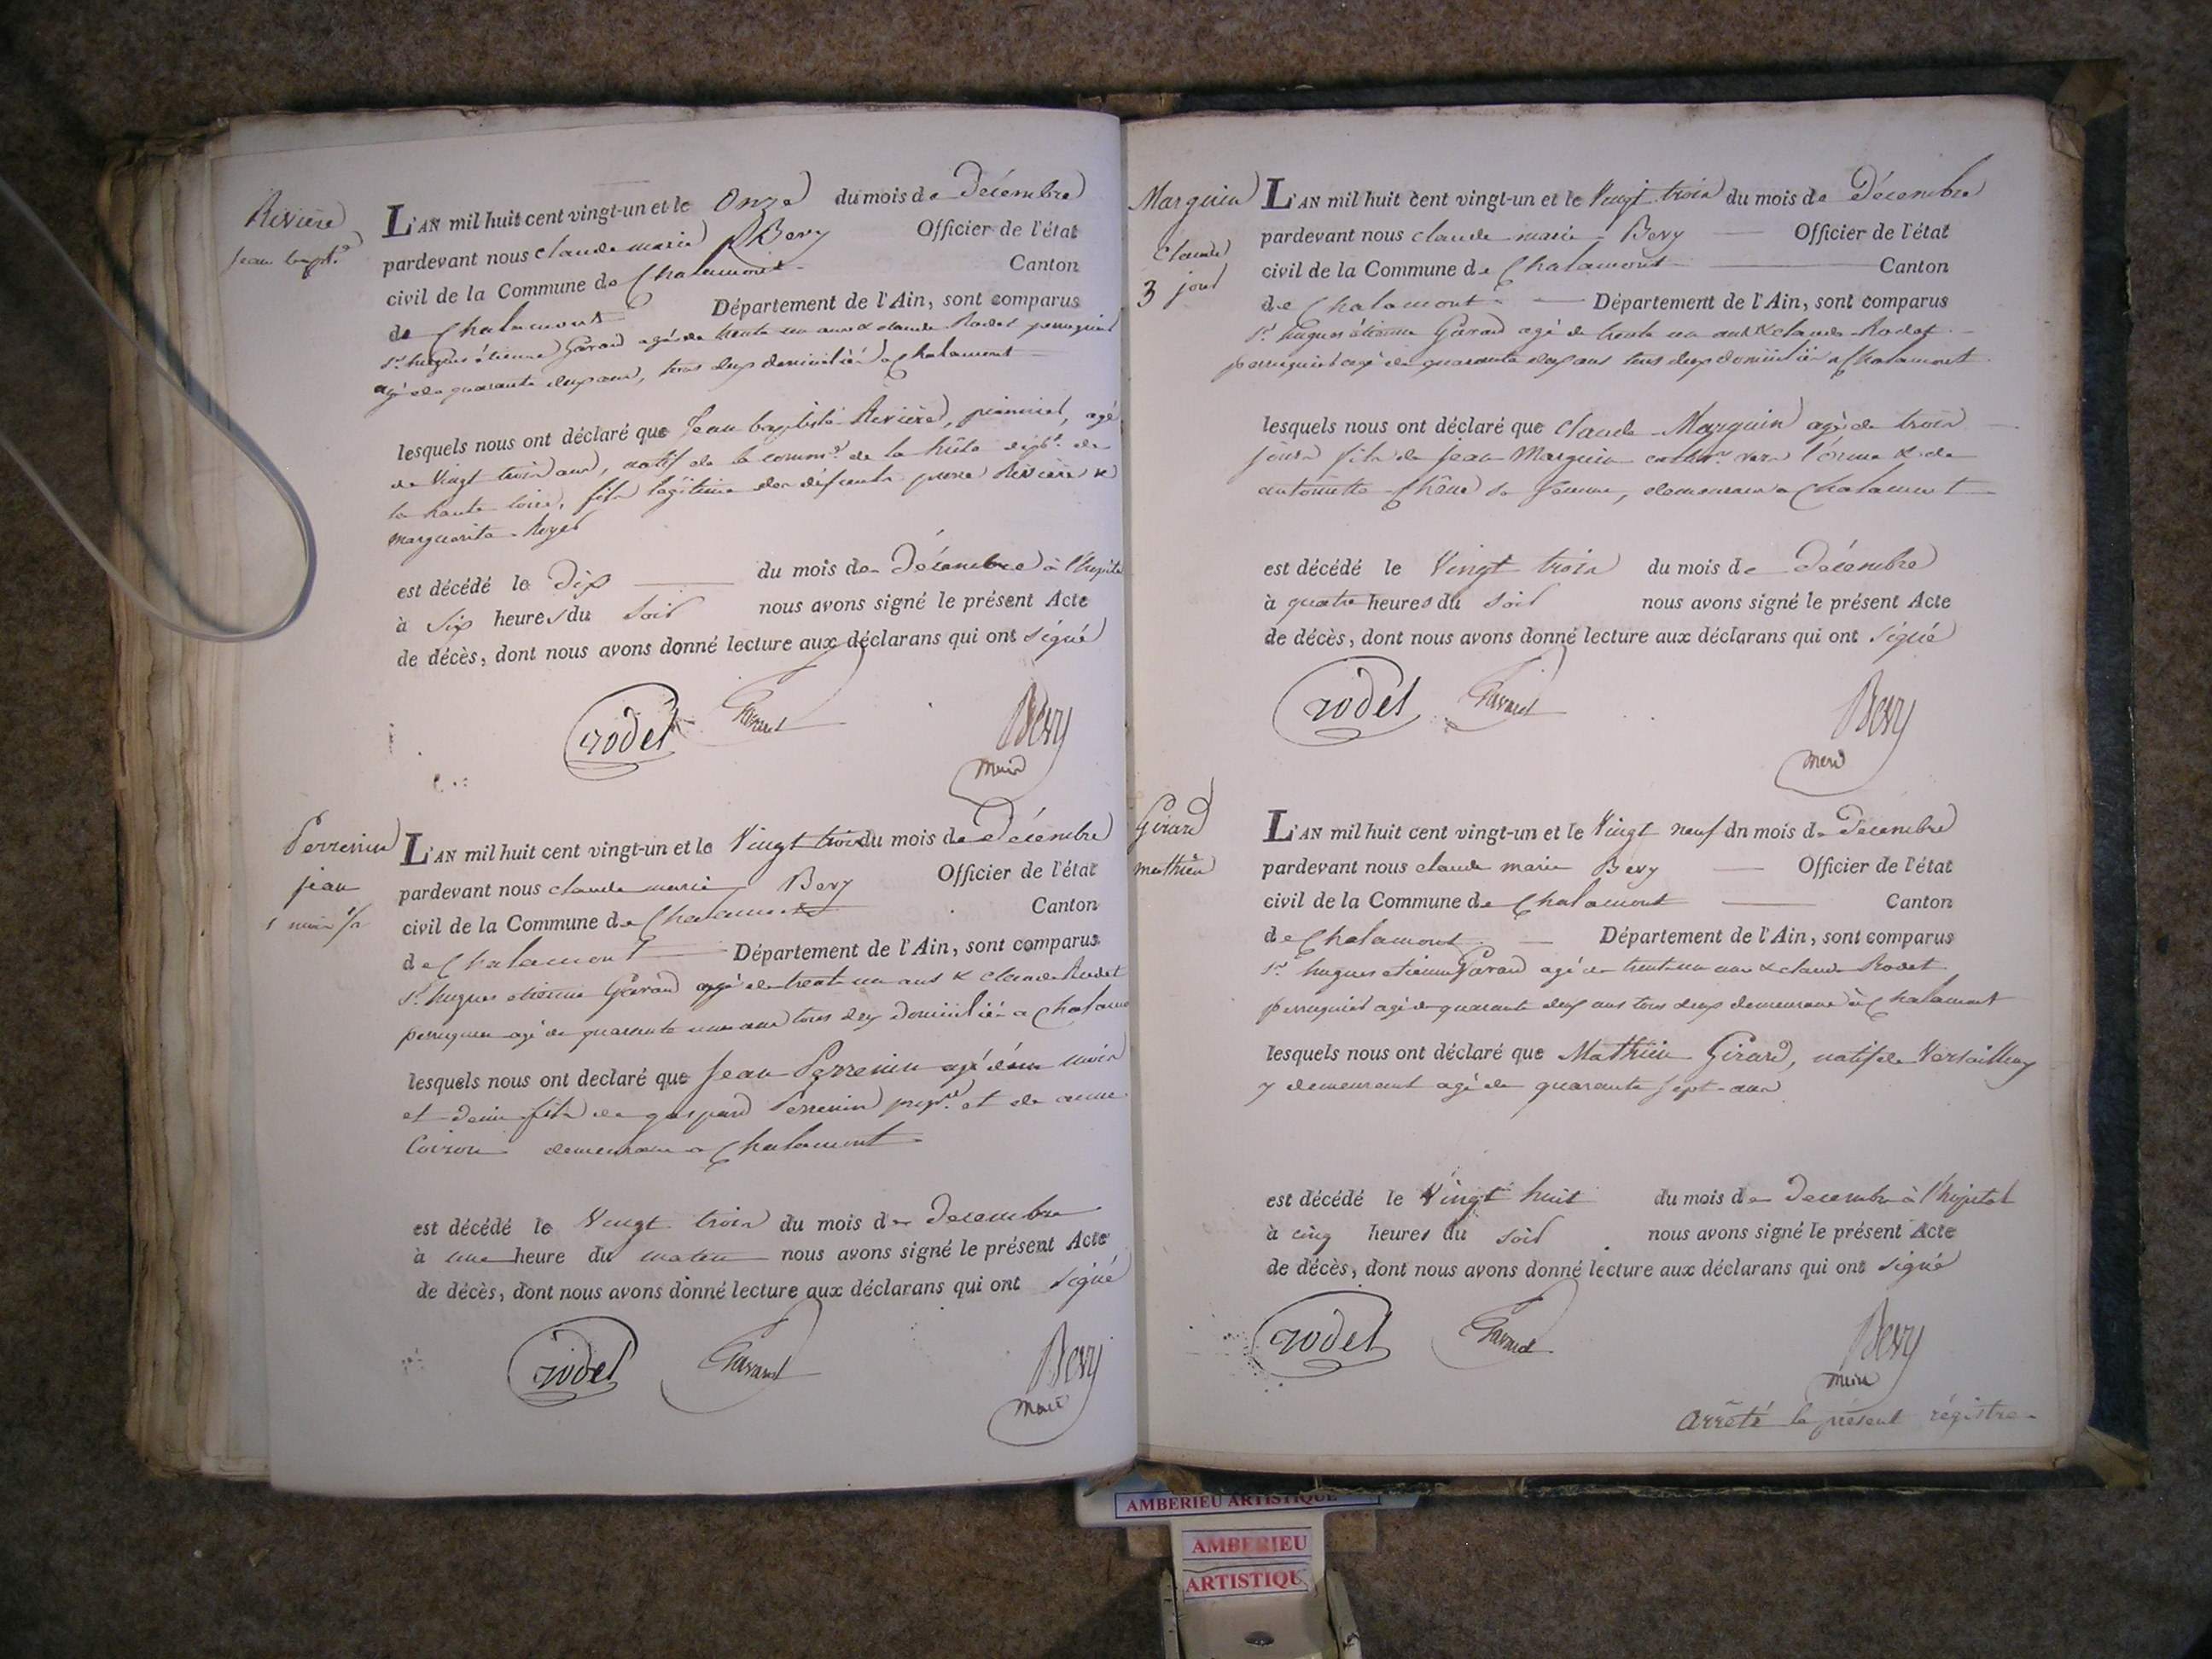 Rivière
Jean bapte
L'AN mil huit cent vingt-un et le Onze du mois de Décembre
pardevant nous claude marie Bevy Officier de l'état
civil de la Commune de Chalamont Canton
de Chalamont Département de l'Ain, sont comparus
sr hugues étienne Gavand agé de trente un ans & claude Rodet perruquier
agé de quarante deux ans, tous deux domiciliés à Chalamont
lesquels nous ont déclaré que Jean baptiste Rivière, agé
de Vingt trois ans, natif de la comme de la dépt de
la haute loire, fils légitime des défunts pierre Rivière &
marguerite Royet
est décédé le Dix du mois de Décembre à l'hopital
à Six heures du Soir nous avons signé le présent Acte
de décès, dont nous avons donné lecture aux déclarans qui ont signé
rodet Gavand Bevy
maire
Perrenin
jean
1 mois 1/2
L'AN mil huit cent vingt-un et le Vingt trois du mois de Décembre
pardevant nous claude marie Bevy Officier de l'état
civil de la Commune de Chalamont Canton
de Chalamont Département de l'Ain, sont comparus
sr hugues etienne Gavand agé de trente un ans & claude Rodet
perruquier agé de quarante ans tous deux domiciliés a Chalamont
lesquels nous ont declaré que Jean Perrenin agé d'un mois
et demi fils de gaspard Perrenin et de anne
Coiron demeurans a Chalamont
est décédé le Vingt trois du mois de Decembre
à une heure du matin nous avons signé le présent Acte
de décès, dont nous avons donné lecture aux déclarans qui ont signé
rodet Gavand Bevy
maire
Marguin
Claude
3 jours
L'AN mil huit cent vingt-un et le Vingt trois du mois de Décembre
pardevant nous claude marie Bevy Officier de l'état
civil de la Commune de Chalamont Canton
de Chalamont Département de l'Ain, sont comparus
sr hugues étienne Gavand agé de trente un ans & claude Rodet
perruquier agé de quarante deux ans tous deux domiciliés a Chalamont
lesquels nous ont déclaré que Claude Marguin agé de trois
jours fils de Jean Marguin & de
antoinette Chêne sa femme, demeurans a Chalamont
est décédé le Vingt trois du mois de Décembre
à quatre heures du Soir nous avons signé le présent Acte
de décès, dont nous avons donné lecture aux déclarans qui ont signé
rodet Gavand Bevy
maire
Girard
mathieu
L'AN mil huit cent vingt-un et le Vingt neuf dn mois de Decembre
pardevant nous claude marie Bevy Officier de l'état
civil de la Commune de Chalamont Canton
de Chalamont Département de l'Ain, sont comparus
sr hugues etienne Gavand agé de trente un ans & claude Rodet
perruquier agé de quarante deux ans tous deux demeurans à Chalamont
lesquels nous ont déclaré que Mathieu Girard, natif de Versailleux
y demeurant agé de quarante sept ans
est décédé le Vingt huit du mois de Decembre à l'hopital
à cinq heures du soir nous avons signé le présent Acte
de décès, dont nous avons donné lecture aux déclarans qui ont signé
rodet Gavand Bevy
maire
arrêté le présent régistre
AMBERIEU ARTISTIQUE
AMBERIEU
ARTISTIQU